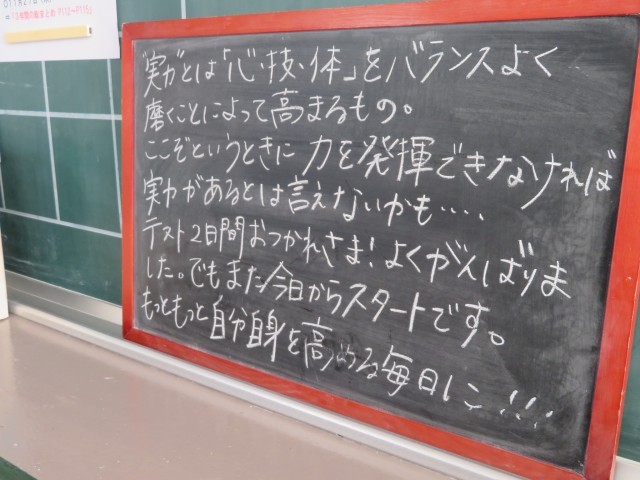 ⇒「3年間の総まとめ P112～P115」
"実力"とは「心・技・体」をバランスよく
磨くことによって高まるもの。
ここぞというときに力を発揮できなければ
実力があるとは言えないかも・・・・・
テスト2日間おつかれさま!よくがんばりま
した。でもまた今日からスタートです。
もっともっと自分自身を高める毎日に!!!